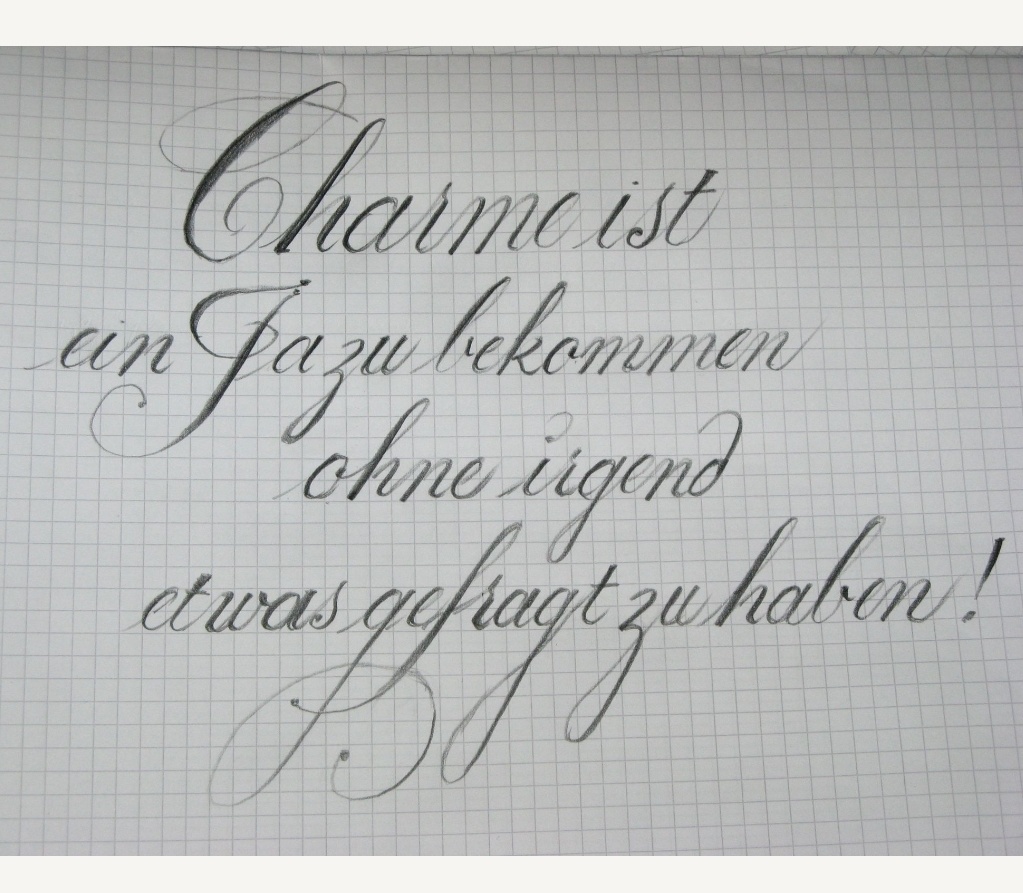 Charme ist
ein Ja zu bekommen
ohne irgend
etwas gefragt zu haben!